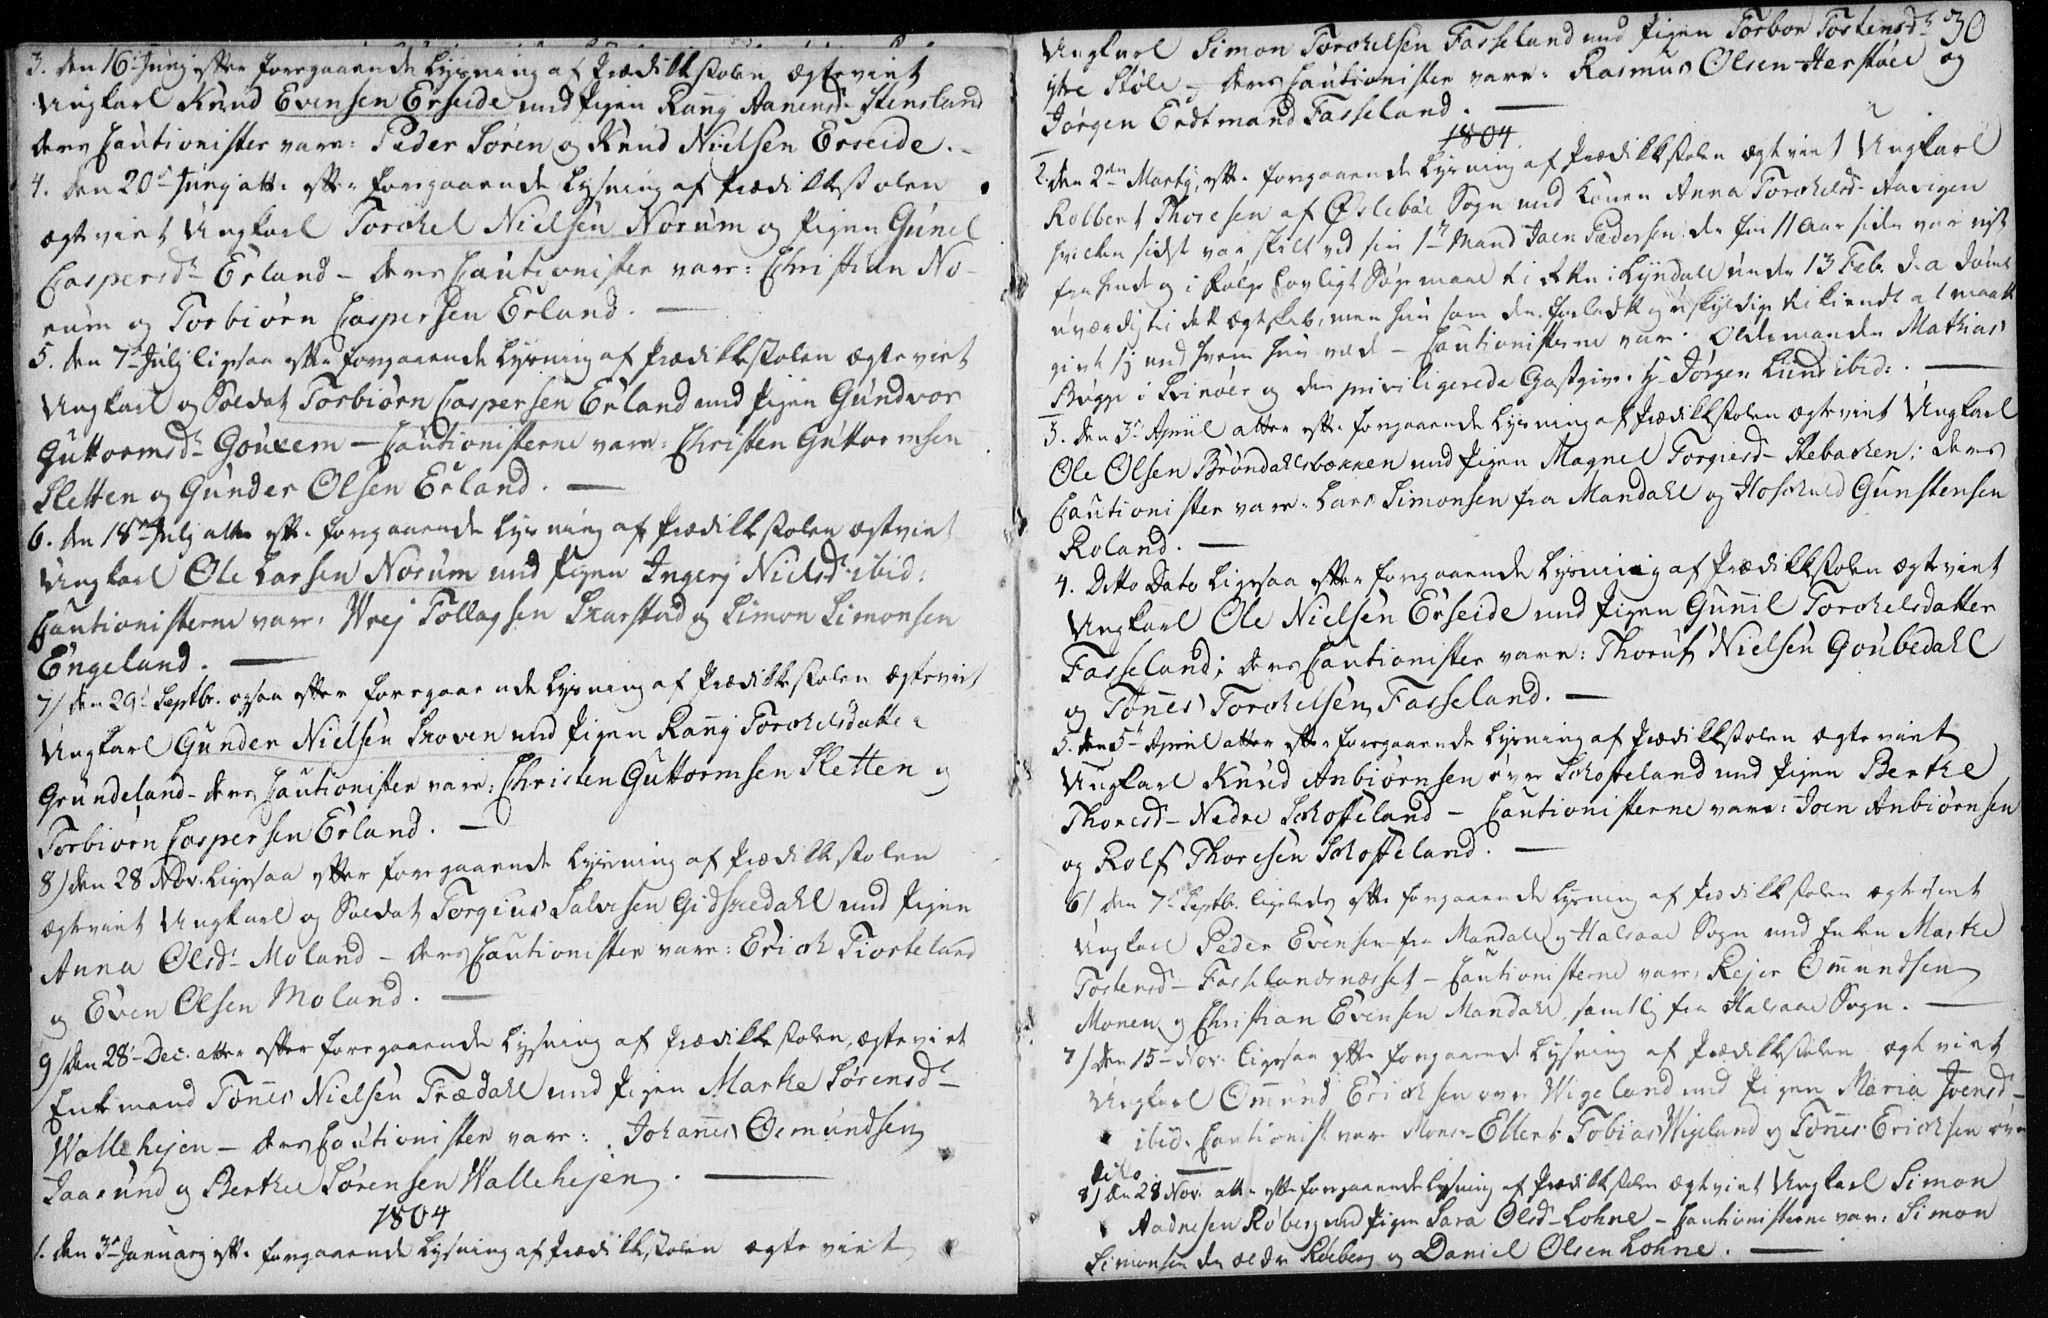 3. den 16. Junj efter foregaaende Lysning af Prædikkestolen ægteviet
Ungkarl Knud Evensen Erseide med Pigen Rang Aanensd. Stensland
deres Cautionister vare: Peder Soren og Knud Nielsen Erseide.
4. den 20de Junj att. efter foregaaende Lysning af Prædikkestolen
ægteviet Ungkarl Torchel Nielsen Norum og Pigen Gunel
Caspersdr Erland - deres Cautionister vare: Christian No-
rum og Torbiørn Caspersen Erland.
5. den 7de Julj ligesaa efter foregaaende Lysning af Prædikkestolen ægteviet
Ungkarl og Soldat Torbiørn Caspersen Erland med Pigen Gundvor
Guttormsdr Gouxem - Cautionisterne vare: Christen Guttormsen
Sletten og Gunder Olsen Erland.
6. den 18de Julj atter eft. foregaaende Lysning af Prædikkestolen ægteviet
Ungkarl Ole Larsen Norum med Pigen Ingerj Nielsdr ibid:
Cautionisterne vare: Wrej Tollagsen Skarstad og Simon Simonsen
Engeland.
7) den 29de Septbr. ogsaa efter foregaaende Lysning af Prædikkestolen ægteviet
Ungkarl Gunder Nielsen Skoven med Pigen Rang Torchelsdatter
Grundeland - deres Cautionister vare: Christen Guttormsen Sletten og
Torbiørn Caspersen Erland.
8) den 28 Nov. Ligesaa efter foregaaende Lysning af Prædikkestolen
ægteviet Ungkarl og Soldat Torgius Salvesen Gidskedahl med Pigen
Anna Olsdr Moland - deres Cautionister vare: Erich Fiorteland
og Even Olsen Moland.
9) den 28de Dec. atter efter foregaaende Lysning af Prædikkestolen, ægteviet
Enkemand Tønnes Nielsen Trædahl med Pigen Marthe Sørensdr
Wallehejen - deres Cautionister vare: Johannes Osmundsen
Jaasund og Berthe Sørensen Wallehejen.
1804
1. den 3de Januarj eft. foregaaende Lysning af Prædikkestolen ægteviet
30
Ungkarl Simon Torchelsen Fasseland med Pigen Torbor Tostensdr
ytre Støle - deres Cautionister vare: Rasmus Olsen Herstøel og
Jørgen Erdtmand Fasseland.
1804
2. den 2den Martj, eft. foregaaende Lysning af Prædikkestolen ægteviet Ungkarl
Rolbent Thoresen af Øslebøe Sogn med Konen Anna Torchelsdr Aavigen
hvilken sidst var skilt ved sin 1ste Mand Joen Pædersen, der for 11 Aar siden var rejst
fra hende og i følge lovligt Søgemaal til Retten i Lyndahl under 13 Feb. d. a. dømt
uværdig til dette ægteskab, men hun som den forladte og uskyldige tilkiendt at maatte
givte sig med hvem hun vilde - Cautionisterne vare: Oldermanden Mathias
Bugge i Svinøer og den priviligerede Gastgiver Hr. Jørgen Lund ibid:
3. den 3de Apriil atter efter foregaaende Lysning af Prædikkestolen ægteviet Ungkarl
Ole Olsen Brøndahlsbækken med Pigen Magnel Torgiersdr Stebacken; deres
Cautionister vare: Lars Simonsen fra Mandahl og Hoschuld Gunstensen
Roland.
4. Ditto Dato ligesaa efter foregaaende Lysning af Prædikkestolen ægteviet
Ungkarl Ole Nielsen Erseide med Pigen Gunil Torchelsdatter
Fasseland; deres Cautionister vare: Thoruf Nielsen Goubedahl
og Tønnes Torchelsen Fasseland.
5. den 5te April atter efter foregaaende Lysning af Prædikkestolen ægteviet
Ungkarl Knud Anbiørnsen øvre Schofteland med Pigen Berthe
Thoresdr Nedre Schofteland - Cautionisterne vare: Joen Anbiørnsen
og Rolf Thoresen Schofteland.
6) den 7de Septbr. ligeledes efter foregaaende Lysning af Prædikkestolen ægteviet
Ungkarl Peder Evensen fra Mandahl og Halsaae Sogn med Enken Marthe
Tostensdr Fasselandsnæsset - Cautionisterne vare: Rejer Omundsen
Monen og Christian Evensen Mandahl, samtlig fra Halsaae Sogn.
7) den 15de Nov. ligesaa efter foregaaende Lysning af Prædikkestolen ægteviet
Ungkarl Omund Erichsen øvre Wigeland med Pigen Maria Joensdr
ibid. Cautionist vare Mons. Ellert Tobias Wigeland og Tønnes Erichsen øvre
dito
8) den 28 Nov. att. efter foregaaende Lysning af Prædikkestolen ægteviet Ungkarl Simon
Aadnesen Røberg med Pigen Sara Olsdr Lohne - Cautionisterne vare: Simon
Simonsen den ældre Røeberg og Daniel Olsen Lohne.